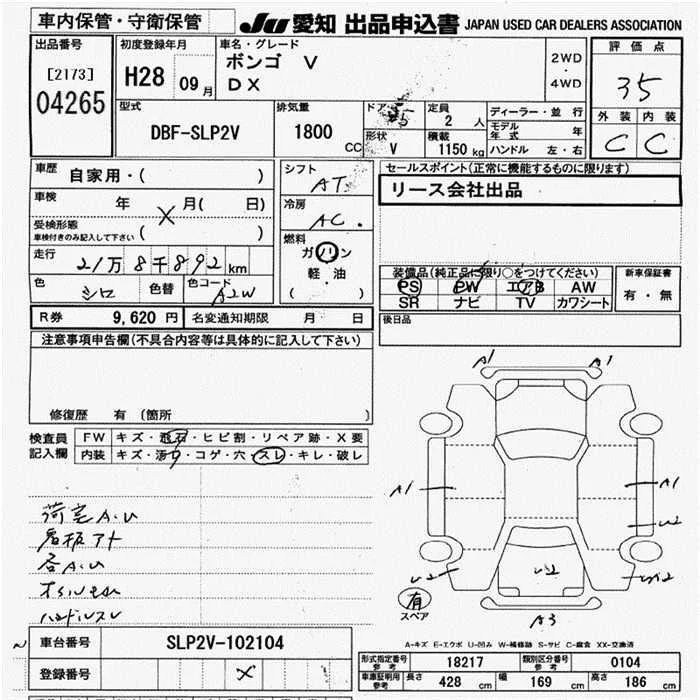 車内保管・守衛保管 JU 愛知 出品申込書 JAPAN USED CAR DEALERS ASSOCIATION
出品番号 初度登録年月 車名・グレード 評価点
[2173] H28 09月 ボンゴ V 2WD・4WD 35
04265 DX
型式 排気量 ドア 5 定員 ディーラー・並行 外装 内装
DBF-SLP2V 1800CC 2人 モデル年式 年 C C
形状 V 積載 1150kg ハンドル 左・右
車歴 自家用・( ) シフト AT セールスポイント(正常に機能するものに限ります)
車検 年 X 月( 日) 冷房 AC. リース会社出品
受検形態 ( )
車検付きのみ記入して下さい
走行 21万8千892km 燃料 ガソリン 装備品(純正品に限り○をつけてください) 新車保証書
色 シロ 色替 色コード A2W 軽・油 PS PW エアB AW 有・無
( ) SR ナビ TV カワシート
R券 9,620円 名変通知期限 月 日 後日品
注意事項申告欄(不具合内容等は具体的に記入して下さい)
修復歴 有 (箇所 )
検査員 FW キズ・飛石・ヒビ割・リペア跡・X要
記入欄 内装 キズ・汚・コゲ・穴・スレ・キレ・破レ
A1 A1
A1 A1
U2
荷室A.U
看板アト
各A.U
ハンドルスレ
U2 U2
有
スペア
A3
A-キズ E-エクボ U-凹み W-補修跡 S-サビ C-腐食 XX-交換済
車台番号 SLP2V-102104
登録番号 X
形式指定番号 参考 18217 類別区分番号 参考 0104
車庫証明用 参考 長さ 428cm 幅 169cm 高さ 186cm